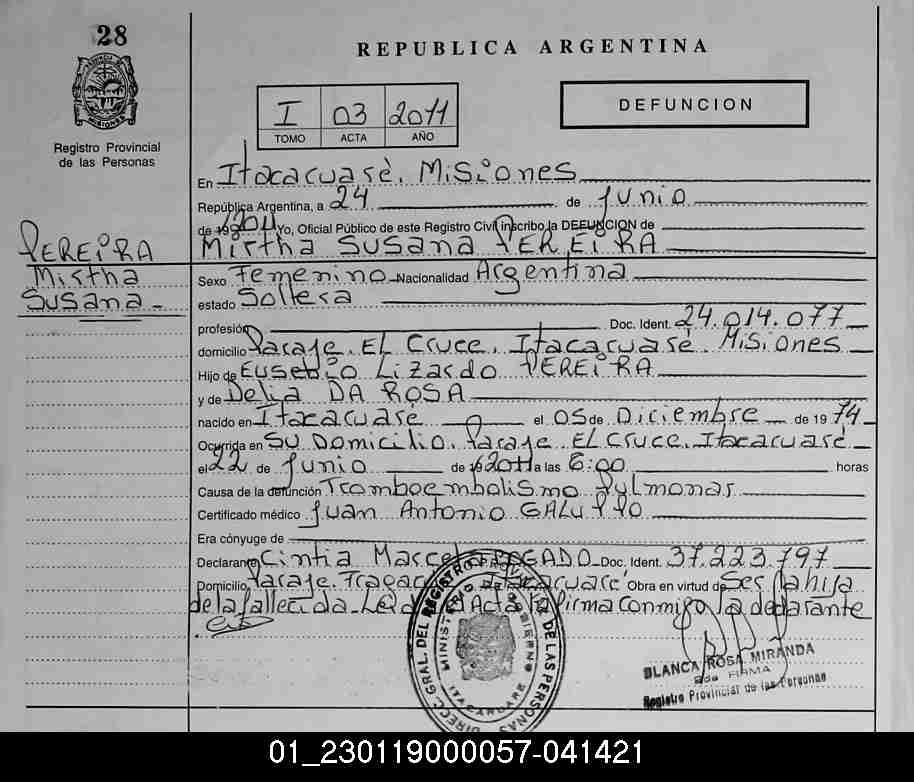 28
REPUBLICA ARGENTINA
Registro Provincial
de las Personas
I 03 2011
TOMO ACTA AÑO
DEFUNCION
En Itacaruaré, Misiones
República Argentina, a 24 de Junio
de 19 2011 Yo, Oficial Público de este Registro Civil inscribo la DEFUNCION de
Mirtha Susana PEREIRA
PEREIRA
Mirtha
Susana
Sexo Femenino Nacionalidad Argentina
estado Soltera
profesión Doc. Ident. 24.014.077
domicilio Paraje. El Cruce. Itacaruaré. Misiones
Hijo de Eusebio Lizardo PEREIRA
y de Delia DA ROSA
nacido en Itacaruaré el 05 de Diciembre de 19 74
Ocurrida en Su Domicilio. Paraje. El Cruce. Itacaruaré
el 22 de Junio de 19 2011 a las 6:00 horas
Causa de la defunción Tromboembolismo Pulmonar
Certificado médico Juan Antonio GALUPPO
Era cónyuge de
Declarante Cintia Marcela Doc. Ident. 37.223.797
Domicilio Paraje. Itacaruaré Obra en virtud de Ser la hija
de la fallecida. Acta la firma conmigo la declarante
DIRECC. GRAL. DEL REGISTRO PROV. DE LAS PERSONAS
MINISTERIO DE GOBIERNO
ITACARUARE
BLANCA ROSA MIRANDA
2da FIRMA
Registro Provincial de las Personas
01_230119000057-041421